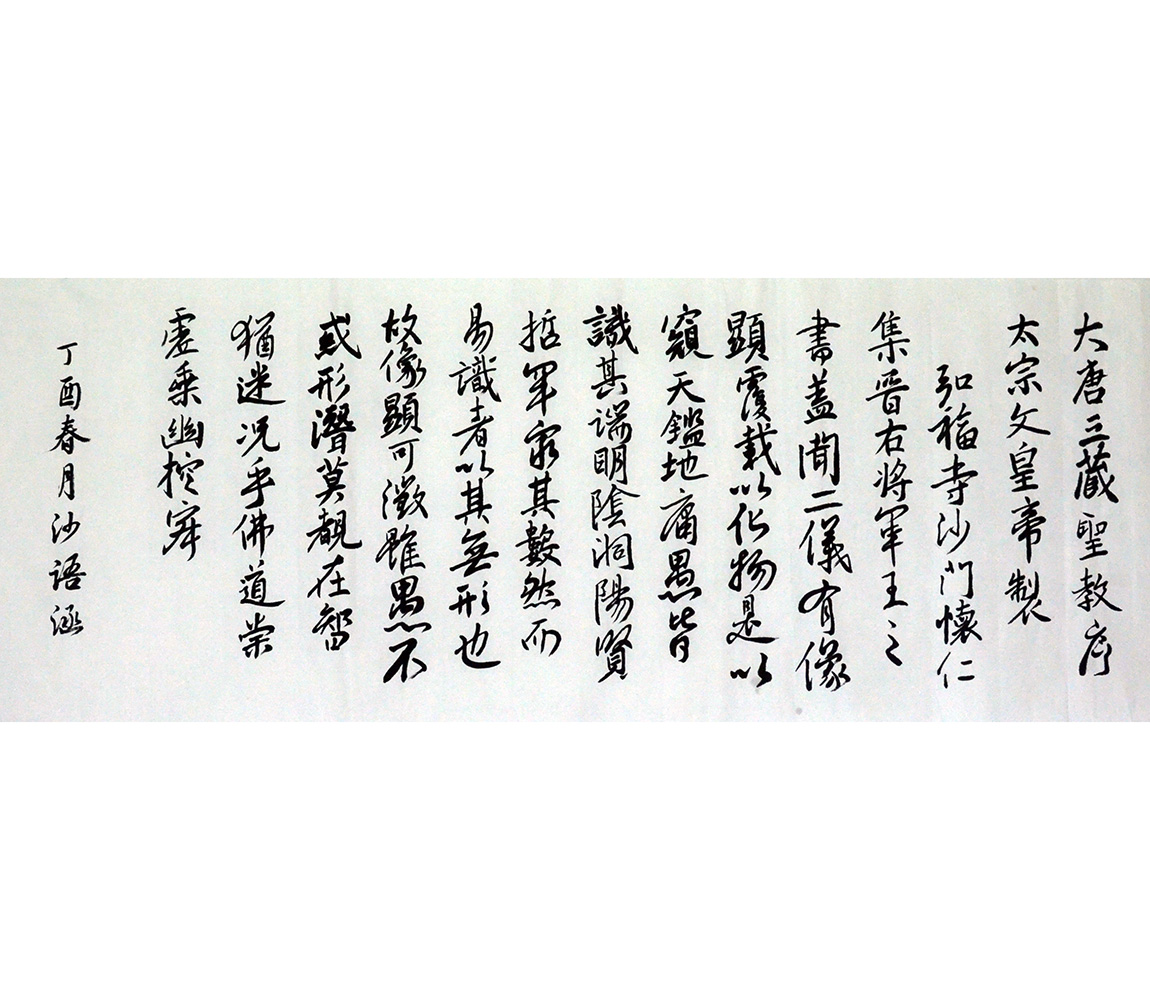 大唐三藏聖教序
太宗文皇帝製
弘福寺沙門懷仁
集晉右將軍王之
書蓋聞二儀有像
顯覆載以化物是以
窺天鑑地庸愚皆
識其端明陰洞陽賢
哲罕窮其數然而
易識者以其無形也
故像顯可徵雖愚不
惑形潛莫覩在智
猶迷况乎佛道崇
虛乘幽控寂
丁酉春月沙语涵